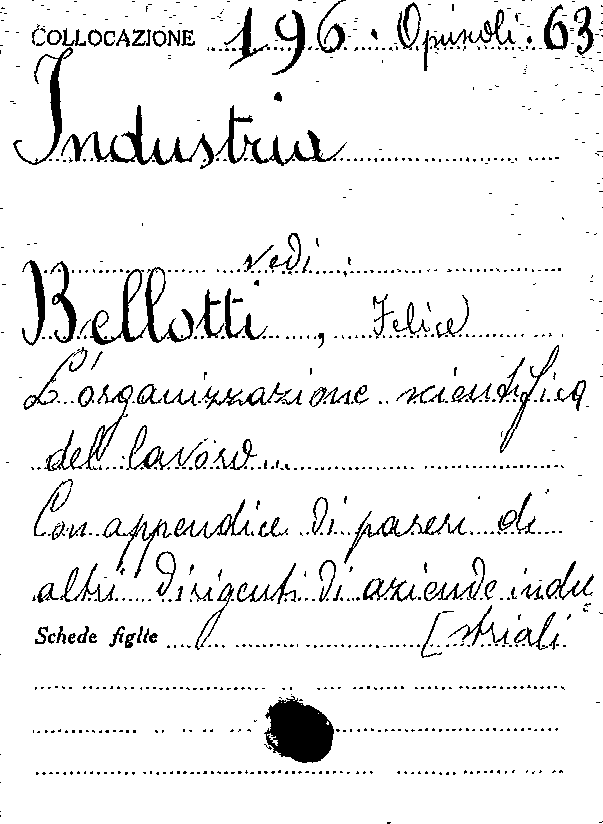 COLLOCAZIONE 196. Opuscoli. 63
Industria
vedi:
Bellotti, Felice
L'organizzazione scientifica
del lavoro...
Con appendice di pareri di
altri dirigenti di aziende indu
Schede figlie [striali